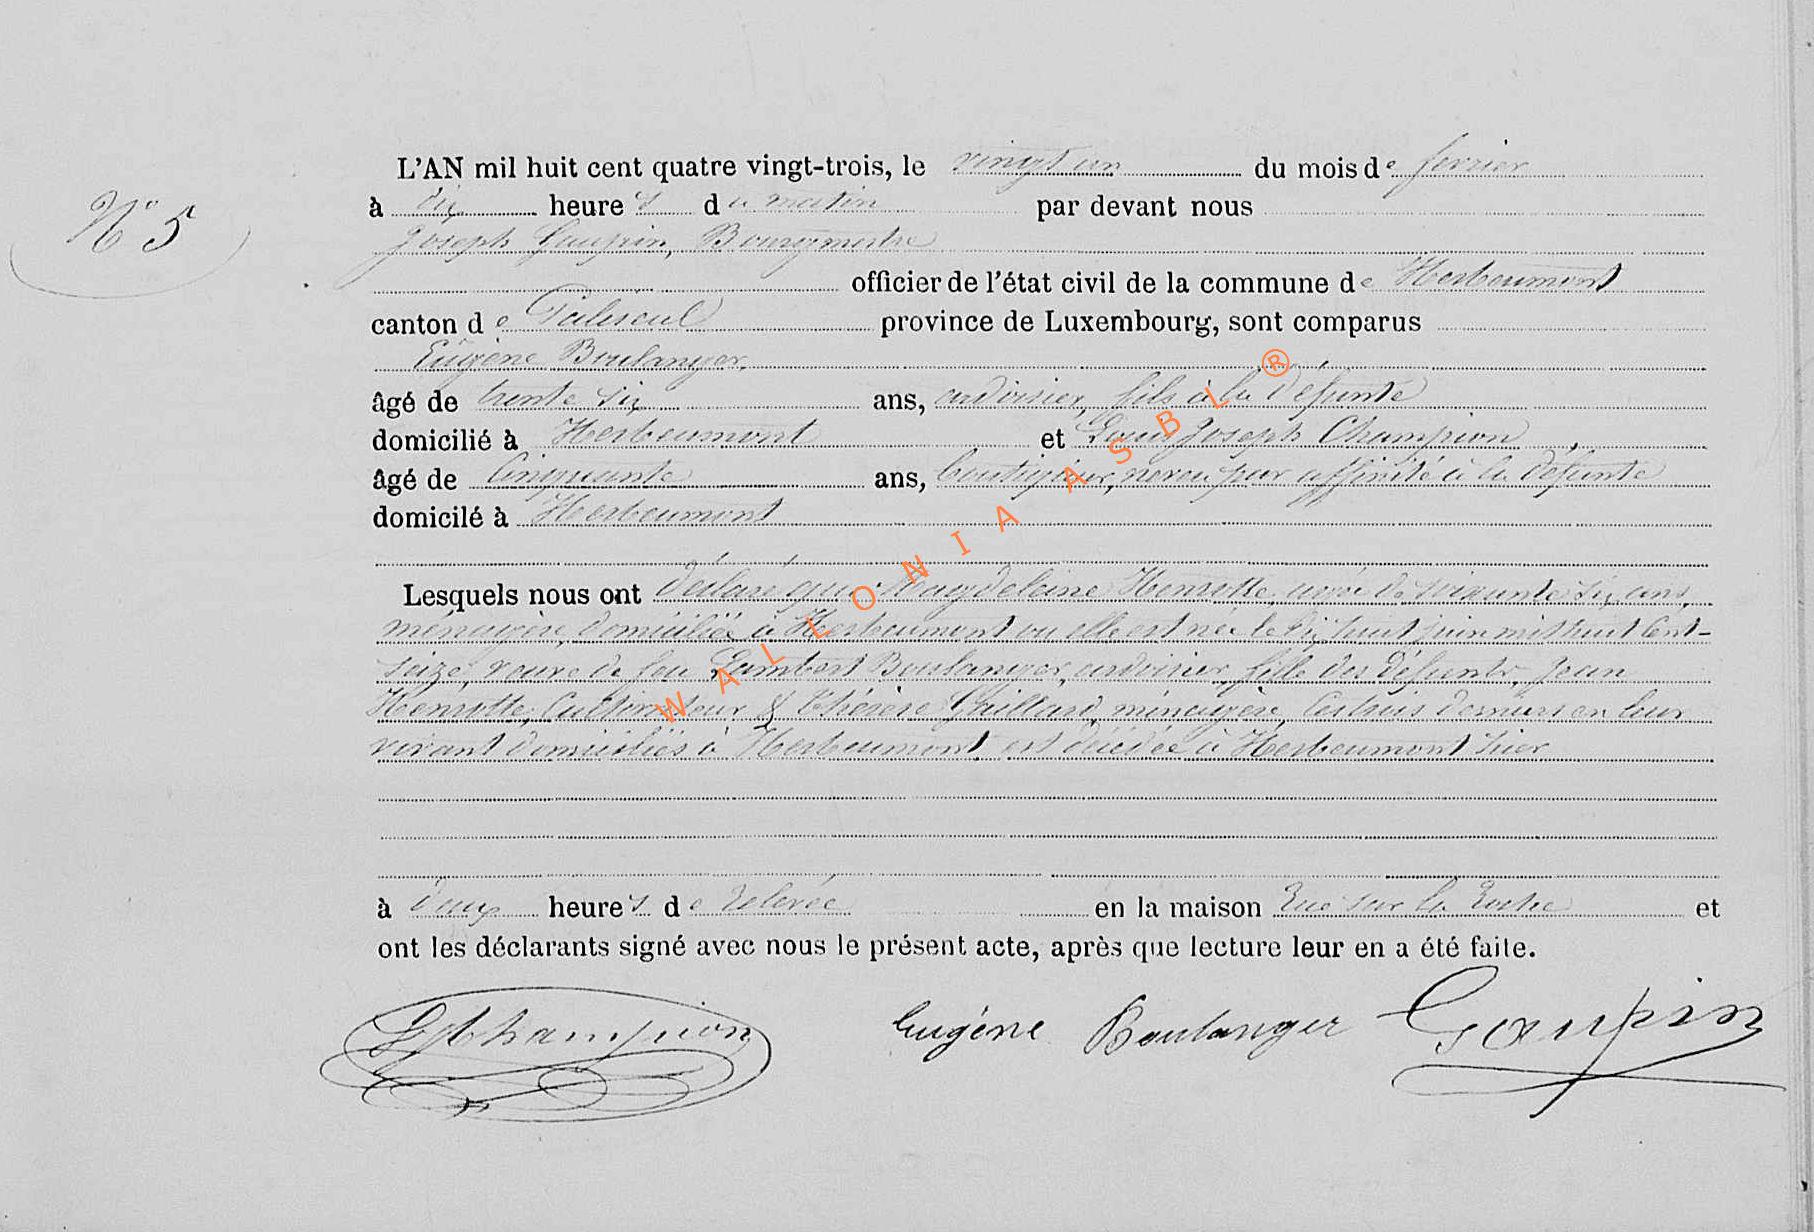 N° 5
L'AN mil huit cent quatre vingt-trois, le vingt un du mois de fevrier
à dix heures du matin par devant nous
Joseph Gaupin, Bourgmestre
officier de l'état civil de la commune de Herbeumont
canton de Paliseul province de Luxembourg, sont comparus
Eugène Boulanger,
âgé de trente six ans, ardoisier, fils à la défunte
domicilié à Herbeumont et Louis Joseph Champion,
âgé de Cinquante ans, boutiquier, neveu par affinité à la défunte
domicilé à Herbeumont
Lesquels nous ont déclaré que Magdeleine Henrotte, agée de soixante six ans,
ménagère, domiciliée à Herbeumont ou elle est née le dix huit juin mil huit Cent-
seize, veuve de feu Lambert Boulanger, ardoisier, fille des défunts, Jean
Henrotte, Cultivateur & Thérèse Guillard, ménagère, Ces trois derniers en leur
vivant domiciliés à Herbeumont, est décédée à Herbeumont hier
à deux heures de relevée en la maison Rue sur la Roche et
ont les déclarants signé avec nous le présent acte, après que lecture leur en a été faite.
LJChampion Eugène Boulanger Gaupin
WALLONIA ASBL ®